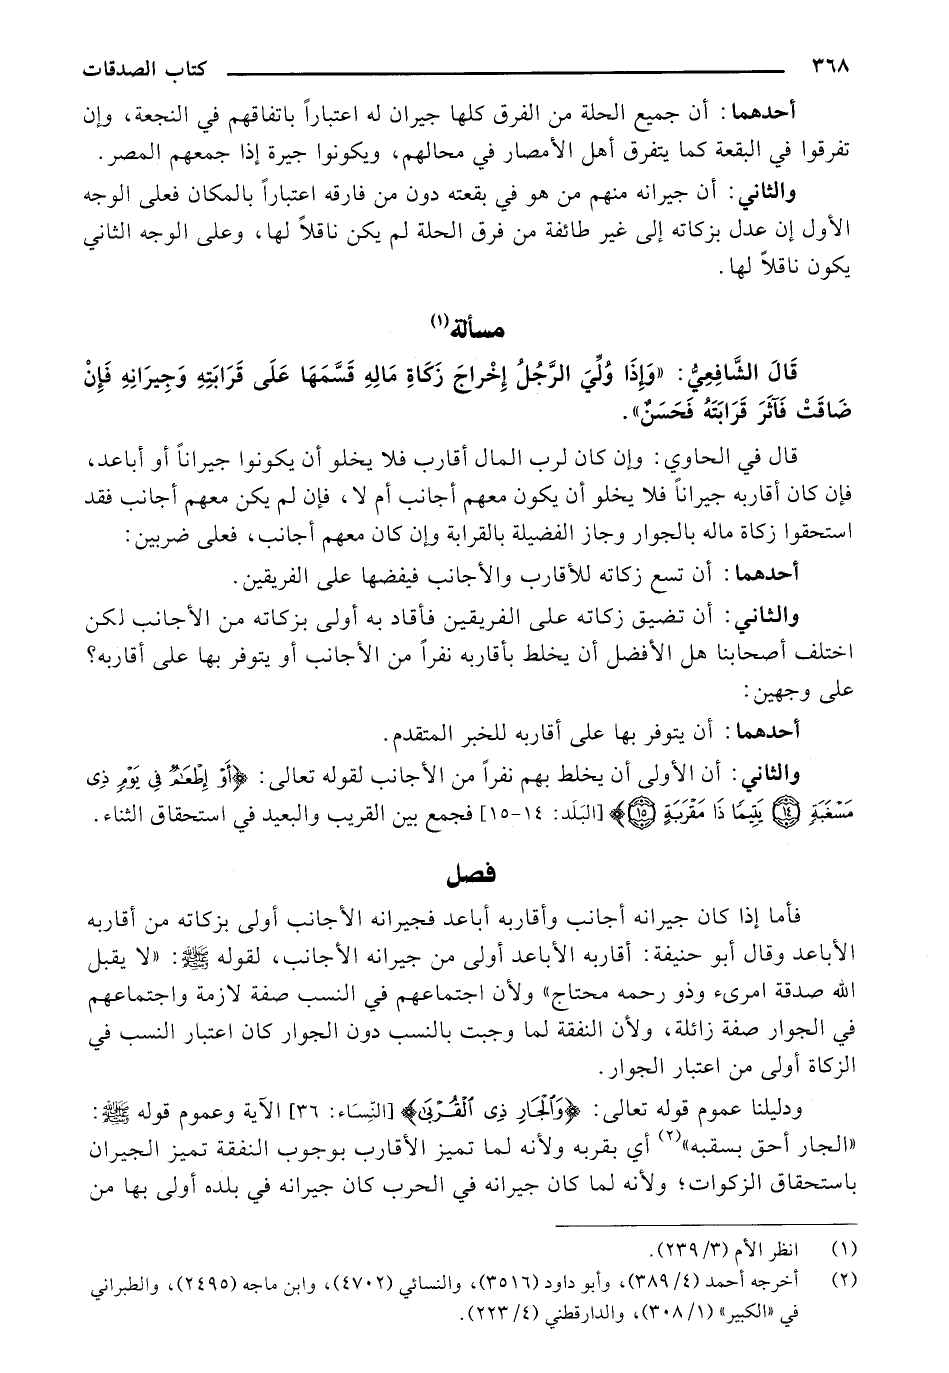 ٣٦٨ كتاب الصدقات
أحدهما: أن جميع الحلة من الفرق كلها جيران له اعتباراً باتفاقهم في النجعة، وإن
تفرقوا في البقعة كما يتفرق أهل الأمصار في محالهم، ويكونوا جيرة إذا جمعهم المصر.
والثاني: أن جيرانه منهم من هو في بقعته دون من فارقه اعتباراً بالمكان فعلى الوجه
الأول إن عدل بزكاته إلى غير طائفة من فرق الحلة لم يكن ناقلاً لها، وعلى الوجه الثاني
يكون ناقلاً لها.
مسألة(١)
قَالَ الشَّافِعِيُّ: «وَإِذَا وُلِّيَ الرَّجُلُ إِخْراجَ زَكَاةِ مَالِهِ قَسَّمَهَا عَلَى قَرَابَتِهِ وَجِيرَانِهِ فَإِنْ
ضَاقَتْ فَآثَرَ قَرَابَتَهُ فَحَسَنٌ».
قال في الحاوي: وإن كان لرب المال أقارب فلا يخلو أن يكونوا جيراناً أو أباعد،
فإن كان أقاربه جيراناً فلا يخلو أن يكون معهم أجانب أم لا، فإن لم يكن معهم أجانب فقد
استحقوا زكاة ماله بالجوار وجاز الفضيلة بالقرابة وإن كان معهم أجانب، فعلى ضربين:
أحدهما: أن تسع زكاته للأقارب والأجانب فيفضها على الفريقين.
والثاني: أن تضيق زكاته على الفريقين فأقاد به أولى بزكاته من الأجانب لكن
اختلف أصحابنا هل الأفضل أن يخلط بأقاربه نفراً من الأجانب أو يتوفر بها على أقاربه؟
على وجهين:
أحدهما: أن يتوفر بها على أقاربه للخبر المتقدم.
والثاني: أن الأولى أن يخلط بهم نفراً من الأجانب لقوله تعالى: ﴿أَوْ إِطْعَٰمٌ فِي يَوْمٍ ذِى
مَسْغَبَةٍ ١٤ يَتِيمًا ذَا مَقْرَبَةٍ ١٥﴾ [البَلَد: ١٤-١٥] فجمع بين القريب والبعيد في استحقاق الثناء.
فصل
فأما إذا كان جيرانه أجانب وأقاربه أباعد فجيرانه الأجانب أولى بزكاته من أقاربه
الأباعد وقال أبو حنيفة: أقاربه الأباعد أولى من جيرانه الأجانب، لقوله ﷺ: «لا يقبل
الله صدقة امرىء وذو رحمه محتاج» ولأن اجتماعهم في النسب صفة لازمة واجتماعهم
في الجوار صفة زائلة، ولأن النفقة لما وجبت بالنسب دون الجوار كان اعتبار النسب في
الزكاة أولى من اعتبار الجوار.
ودليلنا عموم قوله تعالى: ﴿وَٱلْجَارِ ذِى ٱلْقُرْبَىٰ﴾ [النِّسَاء: ٣٦] الآية وعموم قوله ﷺ:
«الجار أحق بسقبه»(٢) أي بقربه ولأنه لما تميز الأقارب بوجوب النفقة تميز الجيران
باستحقاق الزكوات؛ ولأنه لما كان جيرانه في الحرب كان جيرانه في بلده أولى بها من
(١) انظر الأم (٣/ ٢٣٩).
(٢) أخرجه أحمد (٤/ ٣٨٩)، وأبو داود (٣٥١٦)، والنسائي (٤٧٠٢)، وابن ماجه (٢٤٩٥)، والطبراني
في «الكبير» (١/ ٣٠٨)، والدارقطني (٤/ ٢٢٣).